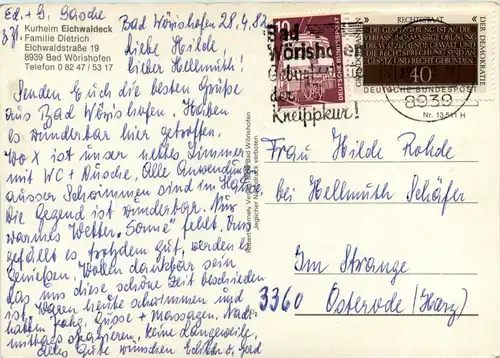 Ed. + G. Gasche
zZt. Kurheim Eichwaldeck
Familie Dietrich
Eichwaldstraße 19
8939 Bad Wörishofen
Telefon 0 82 47 / 53 17
Bad Wörishofen 28.4.82
Liebe Hilde
lieber Hellmuth!
Senden Euch die besten Grüße
aus Bad Wörishofen. Haben
es wunderbar hier getroffen.
Wo X ist unser nettes Zimmer
mit WC + Dusche, Alle Anwendung
ausser Schwimmen sind im Hause,
Die Gegend ist wunderbar. Nur
warmes Wetter „Sonne" fehlt. Uns
gefällt es trotzdem gut, werden es
Genießen. Wollen dankbar sein
das uns diese schöne Zeit beschieden
ist, waren heute schwimmen und
hatten Güsse + Massagen. Nach-
mittags spazieren, keine Langeweile.
Alles Gute wünschen
Bad
Wörishofen
Geburtsort
der
Kneippkur!
10
RECHTSSTAAT
DIE GESETZGEBUNG IST AN DIE
VERFASSUNGSMÄSSIGE ORDNUNG,
DIE VOLLZIEHENDE GEWALT UND
DIE RECHTSPRECHUNG SIND AN
GESETZ UND RECHT GEBUNDEN
40
DEUTSCHE BUNDESPOST
GRUNDGEDANKEN
DER DEMOKRATIE
8939
Nr. 13 511 H
Verlag Bad Wörishofen
Jeglicher Nachdruck verboten
Frau Hilde Rohde
bei Hellmuth Schäfer
Im Strange
3360 Osterode (Harz)